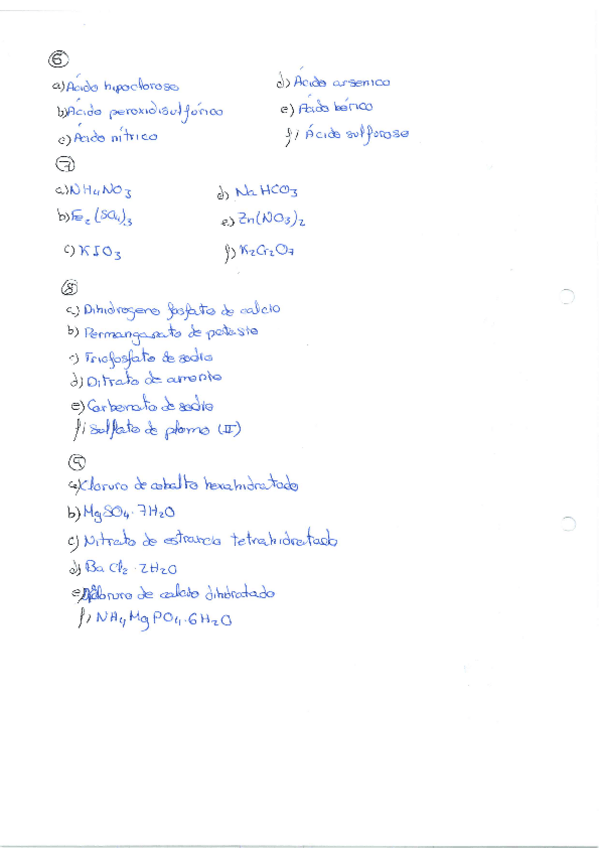 6
a) Ácido hipocloroso
d) Ácido arsenico
b) Ácido peroxidisulfúrico
e) Ácido bórico
c) Ácido nítrico
f) Ácido sulfuroso
7
a) NH4NO3
d) NaHCO3
b) Fe2(SO4)3
e) Zn(NO3)2
c) KIO3
f) K2Cr2O7
8
a) Dihidrogeno fosfato de calcio
b) Permanganato de potasio
c) Triofosfato de sodio
d) Ditrato de amonio
e) Carbonato de sodio
f) Sulfato de plomo (II)
9
a) Cloruro de cobalto hexahidratado
b) MgSO4·7H2O
c) Nitrato de estroncio tetrahidratado
d) BaCl2·2H2O
e) cloruro de calcio dihidratado
f) NH4MgPO4·6H2O